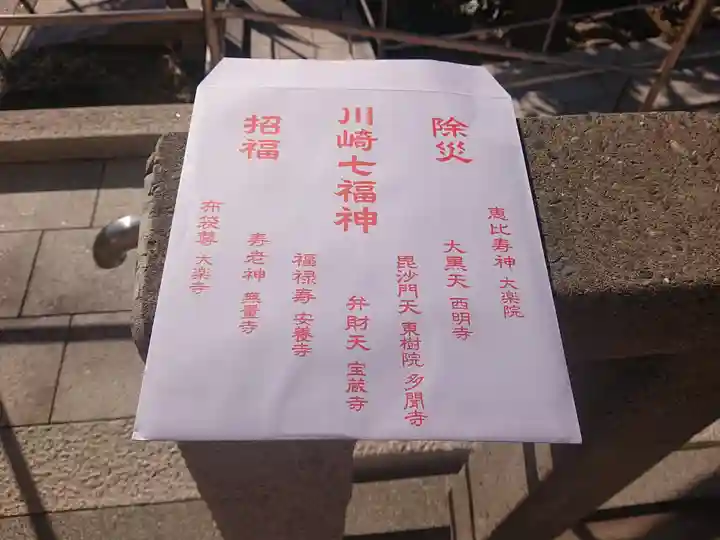 除災
川崎七福神
招福
恵比寿神 大楽院
大黒天 西明寺
毘沙門天 東樹院 多聞寺
弁財天 宝蔵寺
福禄寿 安養寺
寿老神 無量寺
布袋尊 大楽寺